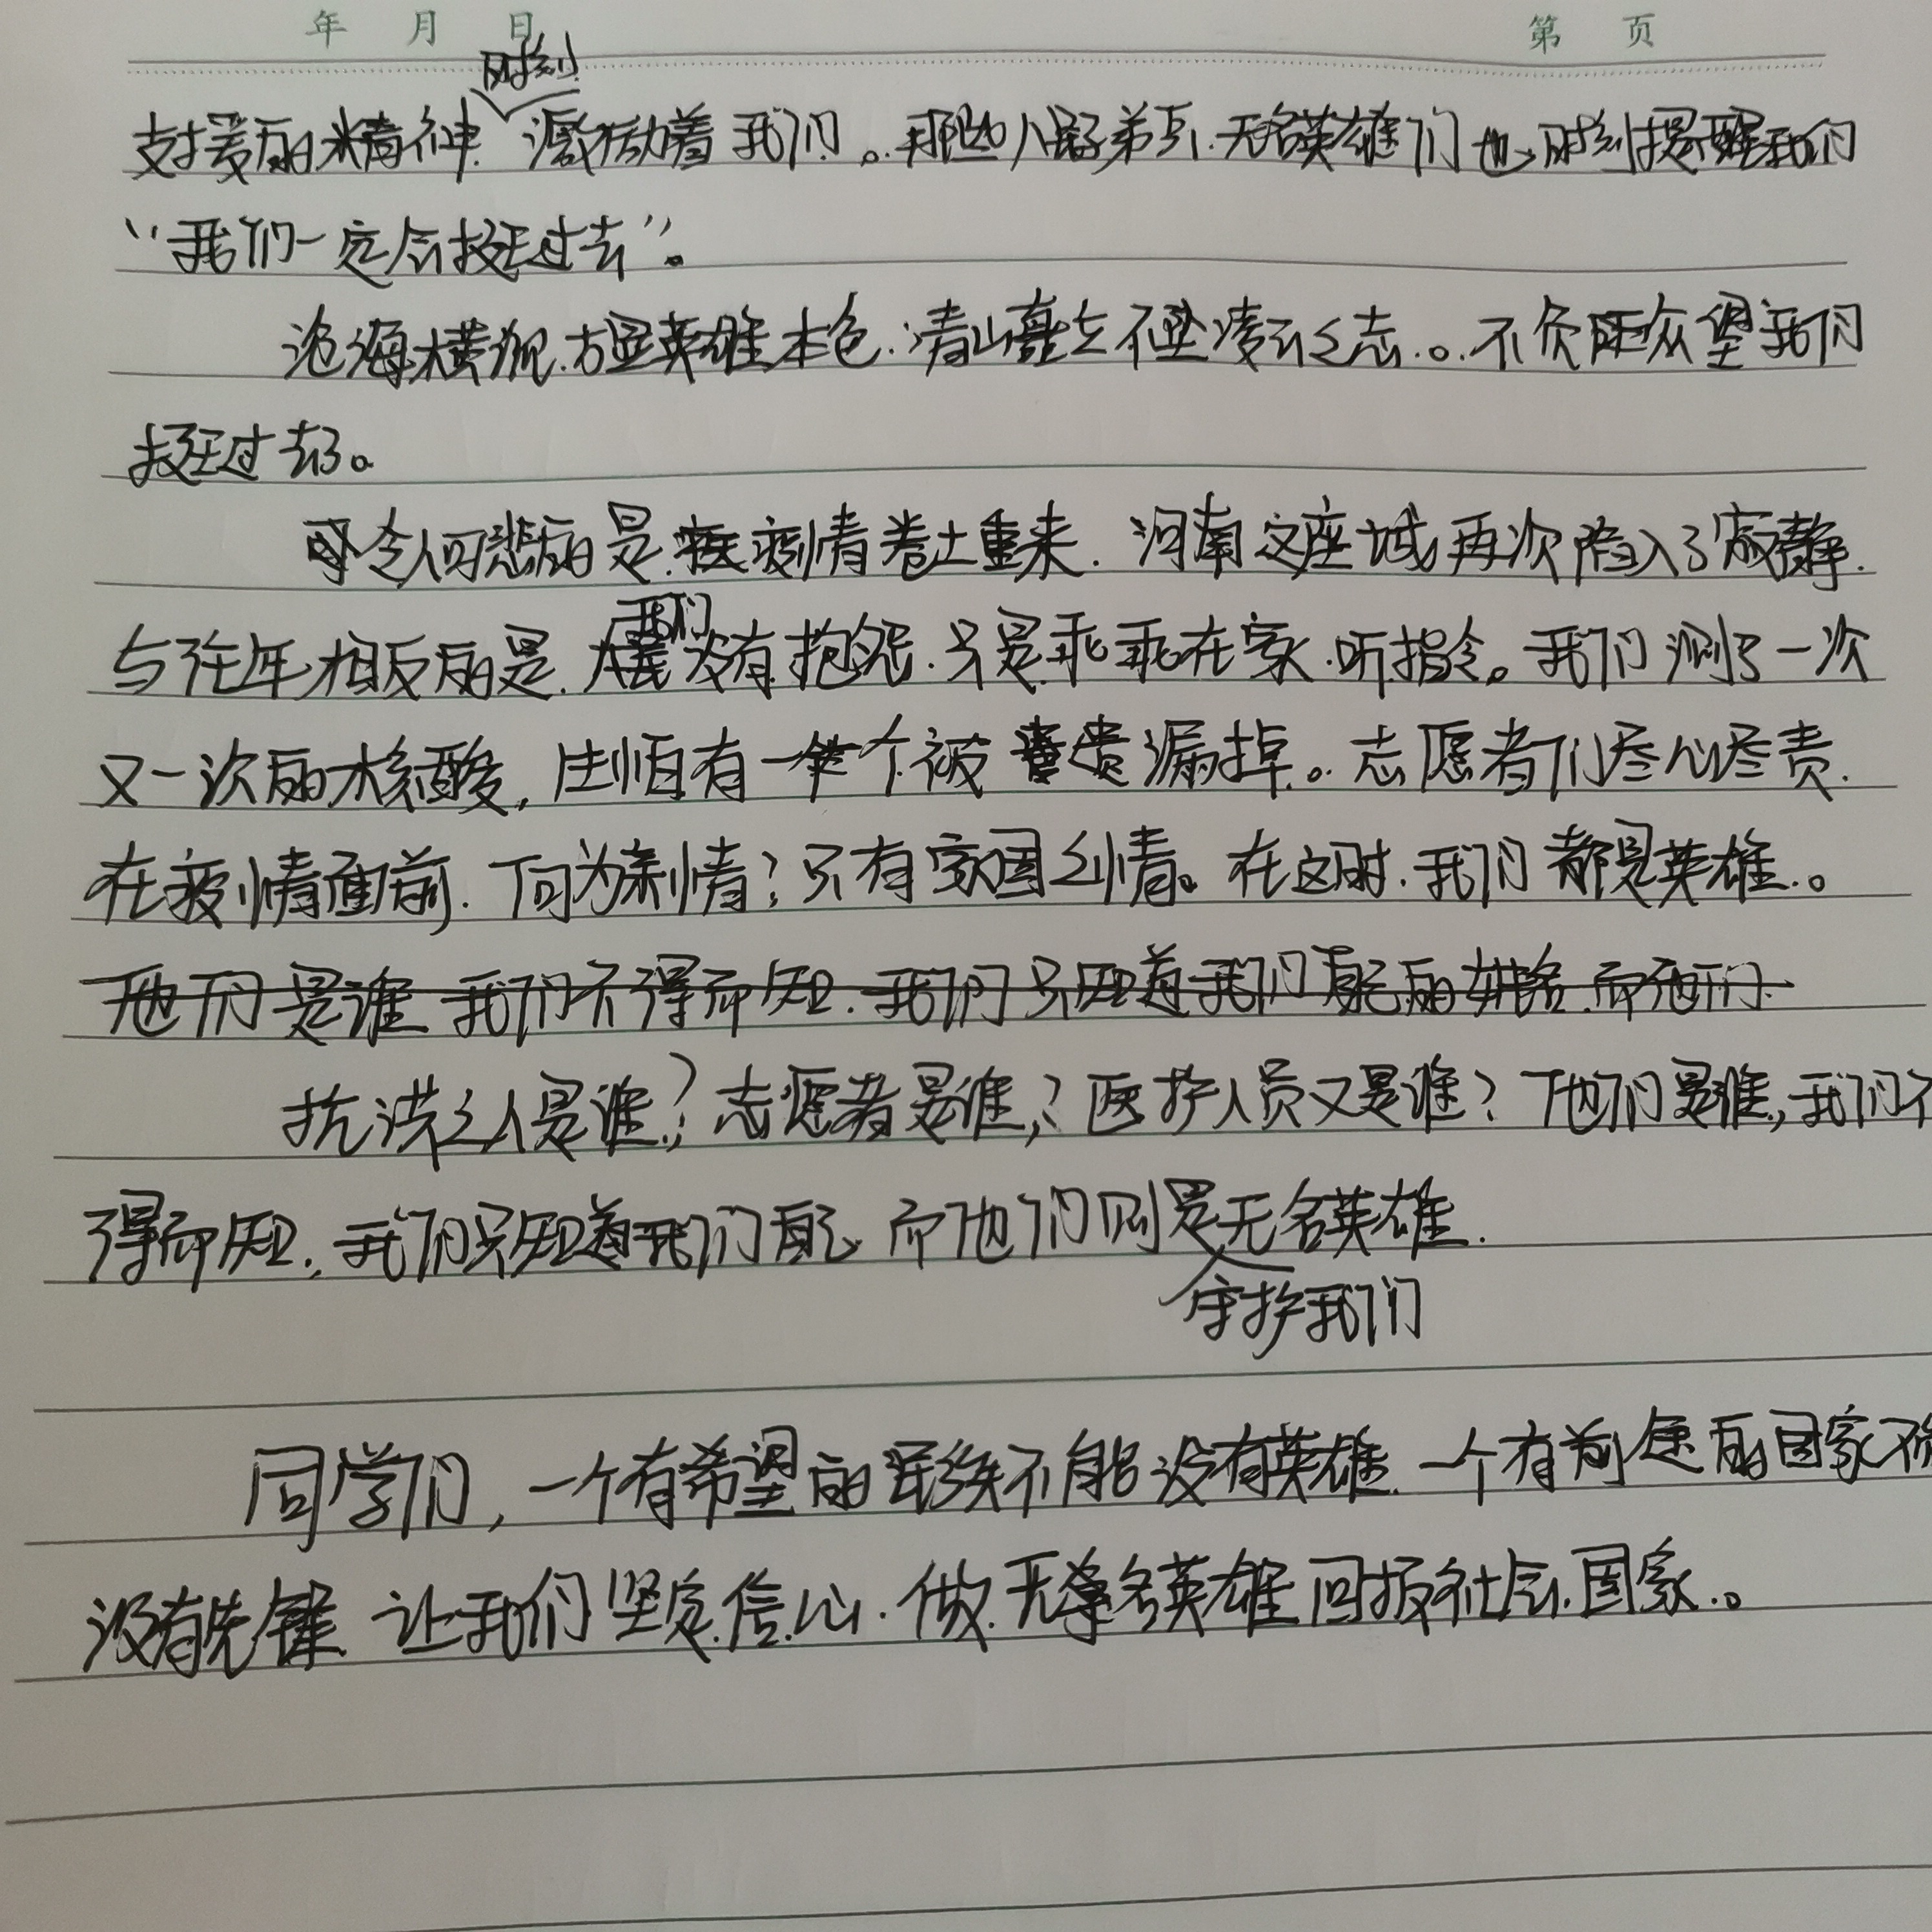 年 月 日 第 页
时刻
支援的精神 激励着我们。那些人民子弟兵、无名英雄们也时刻提醒我们
“我们一定会挺过去”。
沧海横流,方显英雄本色,青山矗立不坠凌云之志。不负众望我们
挺过去了。
令人可悲的是,疫情卷土重来,河南这座城再次陷入了寂静,
我们
与往年相反的是,没有抱怨,只是乖乖在家,听指令。我们测了一次
又一次的核酸,生怕有一个被遗漏掉。志愿者们尽心尽责,
在疫情面前,何为亲情?只有家国之情。在这时,我们都是英雄。
他们是谁 我们不得而知,我们只知道我们自己的姓名,而他们
抗洪之人是谁?志愿者是谁?医护人员又是谁?他们是谁,我们不
得而知,我们只知道我们自己,而他们则是无名英雄.
守护我们
同学们,一个有希望的民族不能没有英雄,一个有前途的国家不能
没有先锋,让我们坚定信心,做无名英雄回报社会,国家。